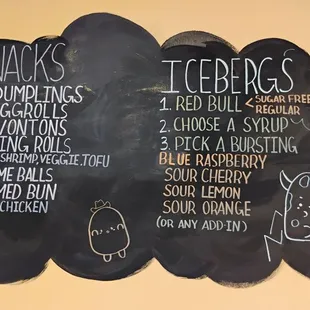 NACKS
DUMPLINGS
GGROLLS
ONTONS
ING ROLLS
SHRIMP, VEGGIE, TOFU
ME BALLS
MED BUN
CHICKEN
ICEBERGS
1. RED BULL < SUGAR FREE
REGULAR
2. CHOOSE A SYRUP
3. PICK A BURSTING
BLUE RASPBERRY
SOUR CHERRY
SOUR LEMON
SOUR ORANGE
(OR ANY ADD-IN)